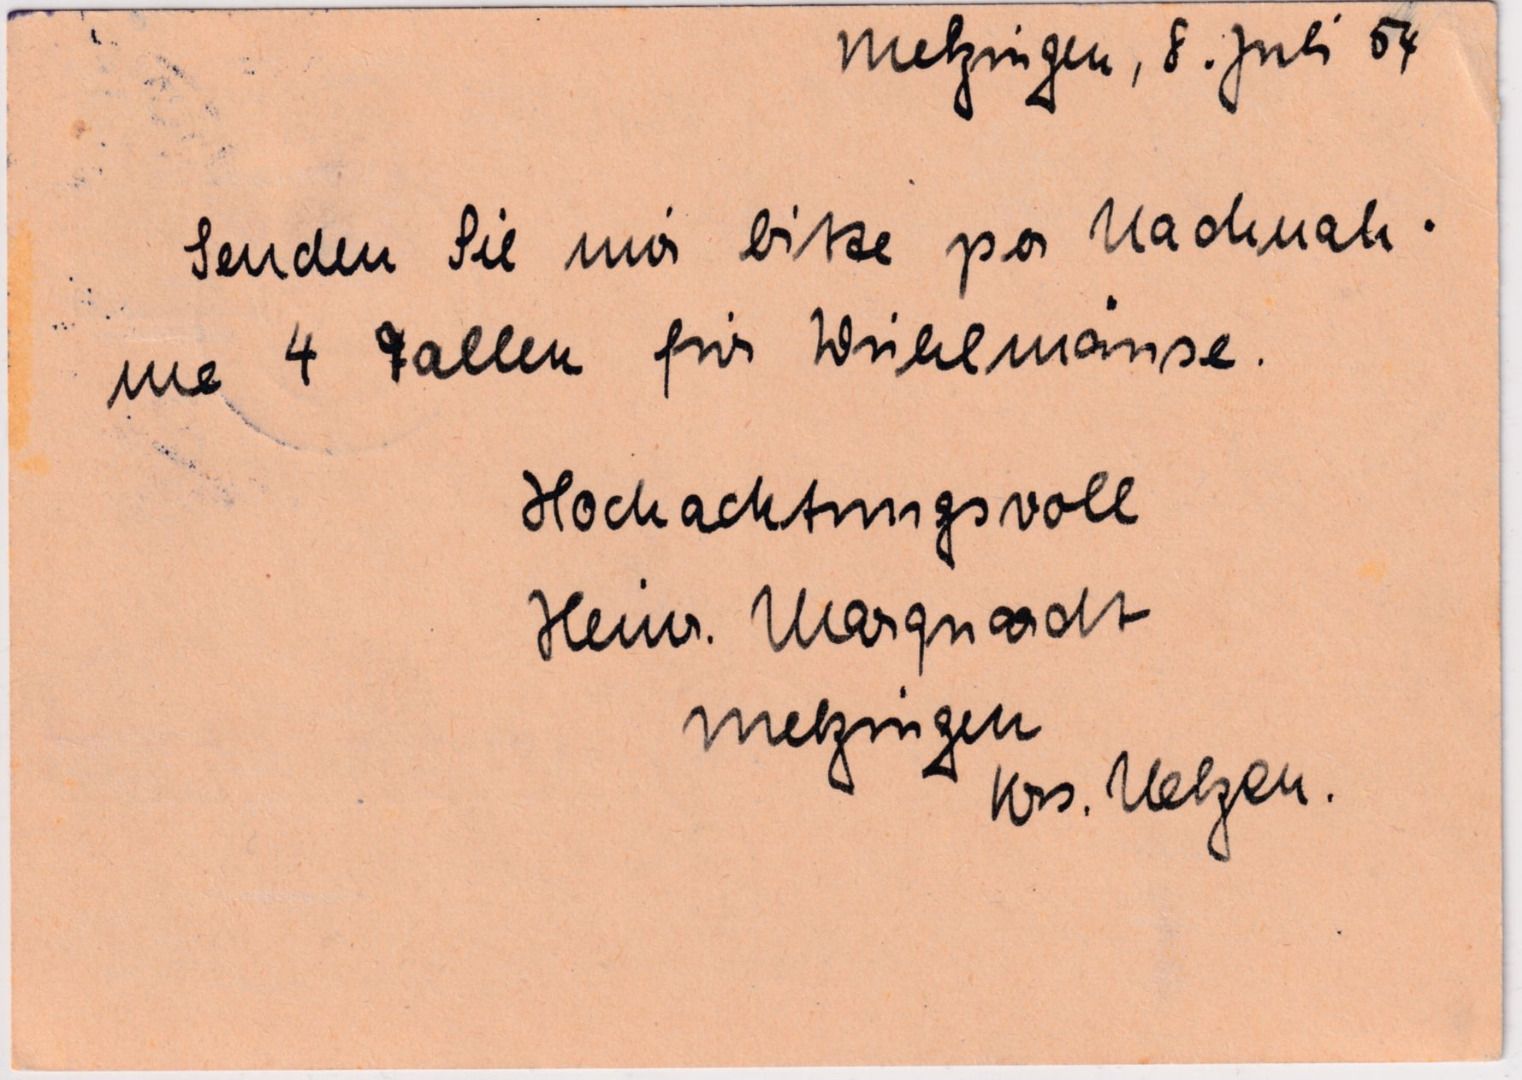 Metzingen, 8. Juli 54
Senden Sie mir bitte per Nachnah-
me 4 Fallen für Wühlmäuse.
Hochachtungsvoll
Heinr. Marquardt
Metzingen
Krs. Uelzen.